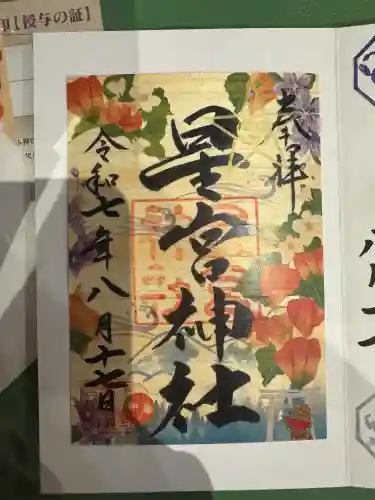 【授与の証】
奉拝
星宮神社
令和七年八月十七日